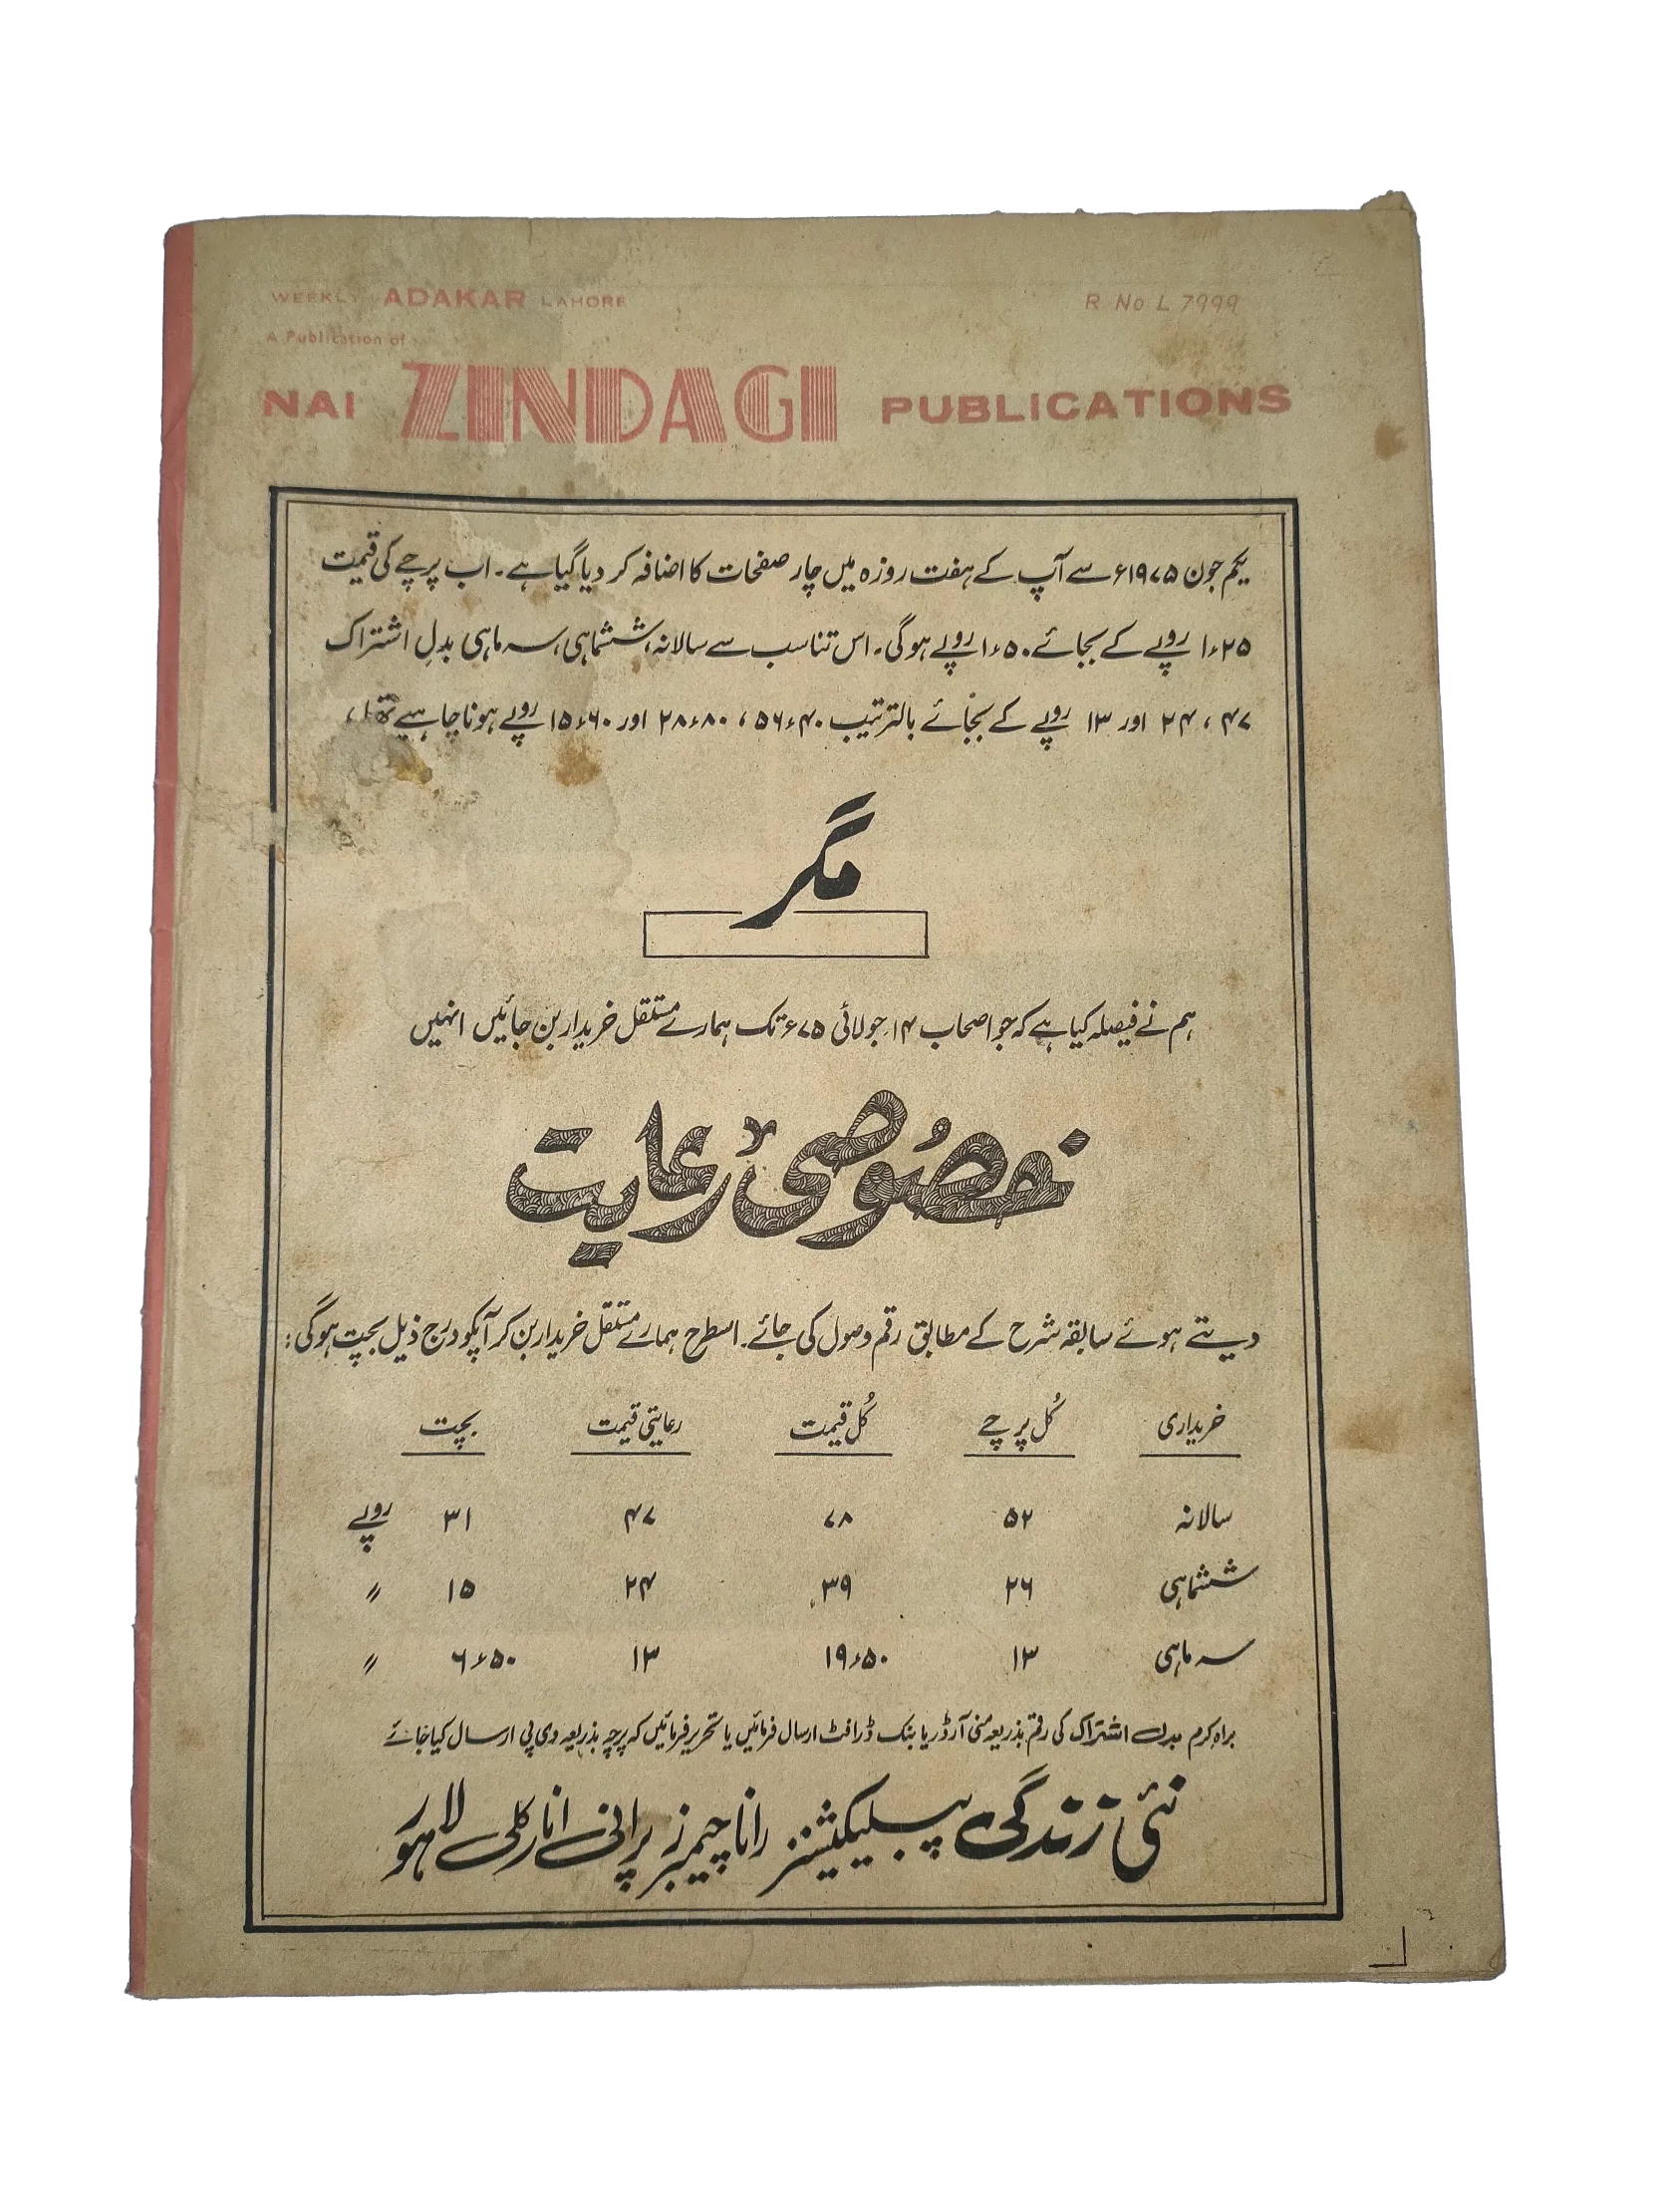 WEEKLY ADAKAR LAHORE
R No L 7999
A Publication of
NAI ZINDAGI PUBLICATIONS
یکم جون ۱۹۷۵ء سے آپ کے ہفت روزہ میں چار صفحات کا اضافہ کر دیا گیا ہے۔ اب پرچے کی قیمت
۱٫۲۵ روپے کے بجائے ۱٫۵۰ روپے ہوگی۔ اس تناسب سے سالانہ، ششماہی، سہ ماہی بدلِ اشتراک
۴۷، ۲۴ اور ۱۳ روپے کے بجائے بالترتیب ۵۶٫۴۰، ۲۸٫۸۰ اور ۱۵٫۶۰ روپے ہونا چاہیے تھا،
مگر
ہم نے فیصلہ کیا ہے کہ جو اصحاب ۱۴ جولائی ۷۵ء تک ہمارے مستقل خریدار بن جائیں انہیں
خصُوصی رعایت
دیتے ہوئے سابقہ شرح کے مطابق رقم وصول کی جائے۔ اسطرح ہمارے مستقل خریدار بن کر آپکو درج ذیل بچت ہوگی:
خریداری کُل پرچے کُل قیمت رعایتی قیمت بچت
سالانہ ۵۲ ۷۸ ۴۷ ۳۱ روپے
ششماہی ۲۶ ۳۹ ۲۴ ۱۵〃
سہ ماہی ۱۳ ۱۹٫۵۰ ۱۳ ۶٫۵۰ 〃
براہ کرم بدل اشتراک کی رقم بذریعہ منی آرڈر یا بنک ڈرافٹ ارسال فرمائیں یا تحریر فرمائیں کہ پرچہ بذریعہ وی پی ارسال کیا جائے
نئی زندگی پبلیکیشنز رانا چیمبرز پرانی انارکلی لاہور